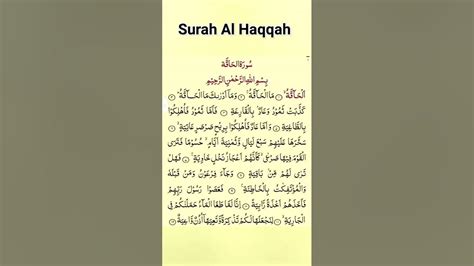 Surah Al Haqqah
سُورَةُ الحَاقَّة
بِسْمِ اللهِ الرَّحْمٰنِ الرَّحِيْمِ
اَلْحَآقَّةُ ۙ مَا الْحَآقَّةُ ۚ وَمَآ اَدْرٰىكَ مَا الْحَآقَّةُ ؕ
كَذَّبَتْ ثَمُوْدُ وَعَادٌۢ بِالْقَارِعَةِ فَاَمَّا ثَمُوْدُ فَاُهْلِكُوْا
بِالطَّاغِيَةِ وَاَمَّا عَادٌ فَاُهْلِكُوْا بِرِيْحٍ صَرْصَرٍ عَاتِيَةٍ ۙ
سَخَّرَهَا عَلَيْهِمْ سَبْعَ لَيَالٍ وَّثَمٰنِيَةَ اَيَّامٍ ۙ حُسُوْمًا فَتَرَى
الْقَوْمَ فِيْهَا صَرْعٰى ۙ كَاَنَّهُمْ اَعْجَازُ نَخْلٍ خَاوِيَةٍ ۚ فَهَلْ
تَرٰى لَهُمْ مِّنْۢ بَاقِيَةٍ وَجَآءَ فِرْعَوْنُ وَمَنْ قَبْلَهٗ
وَالْمُؤْتَفِكٰتُ بِالْخَاطِئَةِ ۚ فَعَصَوْا رَسُوْلَ رَبِّهِمْ
فَاَخَذَهُمْ اَخْذَةً رَّابِيَةً اِنَّا لَمَّا طَغَا الْمَآءُ حَمَلْنٰكُمْ فِى
الْجَارِيَةِ ۙ لِنَجْعَلَهَا لَكُمْ تَذْكِرَةً وَّتَعِيَهَآ اُذُنٌ وَّاعِيَةٌ